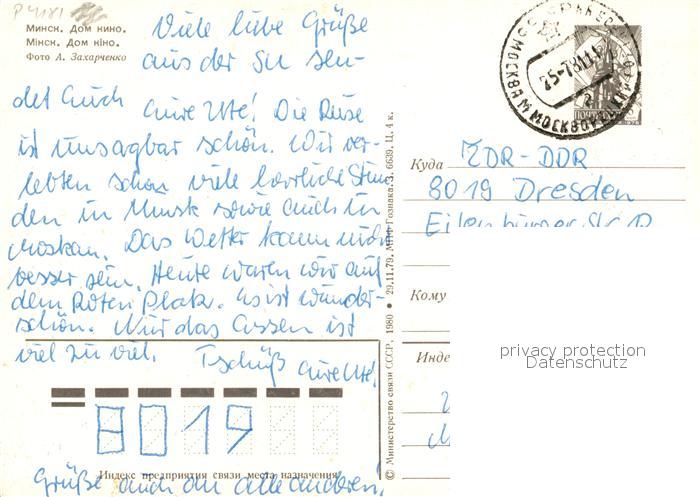 P 4181
Минск. Дом кино.
Мінск. Дом кіно.
Фото А. Захарченко
Viele liebe Grüße
aus der SU sen-
det Euch Eure Ute! Die Reise
ist unsagbar schön. Wir ver-
lebten schon viele herrliche Stun
den in Minsk sowie auch in
Moskau. Das Wetter kann nicht
besser sein. Heute waren wir auf
dem Roten Platz. Es ist wunder-
schön. Nur das Essen ist
viel zu viel. Tschüß Eure Ute!
8019
Индекс предприятия связи места назначения
Grüße auch an alle anderen!
© Министерство связи СССР, 1980 • 29.11.79. МПФ Гознака. З. 6639. Ц. 4 к.
МОСКВА
ПОЧТА
Куда DDR-DDR
8019 Dresden
Eilenburger Str. 12
Кому
Инде
privacy protection
Datenschutz